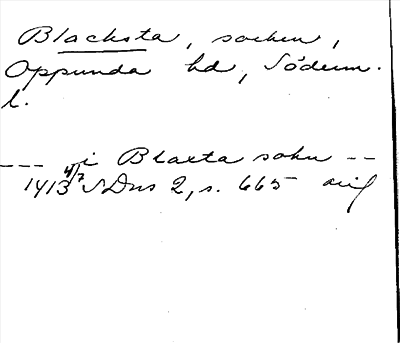 Blacksta, socken,
Oppunda hd, Söderm.
l.
--- i Blacta sokn --
1413 4/7 SDns 2, s. 665 orig